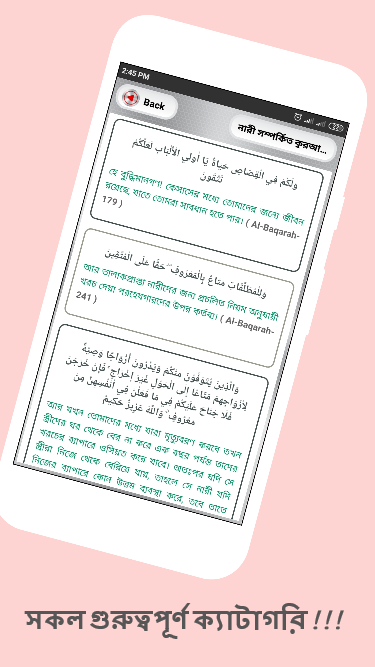 2:45 PM
Back
নারী সম্পর্কিত কুরআ...
وَلَكُمْ فِي الْقِصَاصِ حَيَاةٌ يَا أُولِي الْأَلْبَابِ لَعَلَّكُمْ
تَتَّقُونَ
হে বুদ্ধিমানগণ! কেসাসের মধ্যে তোমাদের জন্যে জীবন
রয়েছে, যাতে তোমরা সাবধান হতে পার। ( Al-Baqarah-
179 )
وَلِلْمُطَلَّقَاتِ مَتَاعٌ بِالْمَعْرُوفِ ۖ حَقًّا عَلَى الْمُتَّقِينَ
আর তালাকপ্রাপ্তা নারীদের জন্য প্রচলিত নিয়ম অনুযায়ী
খরচ দেয়া পরহেযগারদের উপর কর্তব্য। ( Al-Baqarah-
241 )
وَالَّذِينَ يُتَوَفَّوْنَ مِنكُمْ وَيَذَرُونَ أَزْوَاجًا وَصِيَّةً
لِّأَزْوَاجِهِم مَّتَاعًا إِلَى الْحَوْلِ غَيْرَ إِخْرَاجٍ ۚ فَإِنْ خَرَجْنَ
فَلَا جُنَاحَ عَلَيْكُمْ فِي مَا فَعَلْنَ فِي أَنفُسِهِنَّ مِن
مَّعْرُوفٍ ۗ وَاللَّهُ عَزِيزٌ حَكِيمٌ
আর যখন তোমাদের মধ্যে যারা মৃত্যুবরণ করবে তখন
স্ত্রীদের ঘর থেকে বের না করে এক বছর পর্যন্ত তাদের
খরচের ব্যাপারে ওসিয়ত করে যাবে। অতঃপর যদি সে
স্ত্রীরা নিজে থেকে বেরিয়ে যায়, তাহলে সে নারী যদি
নিজের ব্যাপারে কোন উত্তম ব্যবস্থা করে, তবে তাতে
সকল গুরুত্বপূর্ণ ক্যাটাগরি !!!